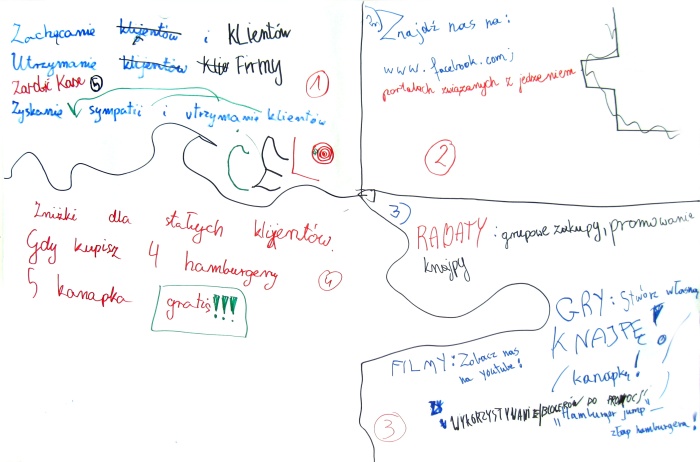 Zachęcanie klijentów i KLientów
Utrzymanie klijentów Klie FIRMY
Zarobić Kasę
Zyskanie sympatii i utrzymanie klientów
1
CEL
2) Znajdź nas na:
www.facebook.com;
portalach związanych z jedzeniem
2
Zniżki dla stałych klijentów.
Gdy kupisz 4 hamburgery
5 kanapka gratis!!!
4
3)
RABATY: grupowe zakupy, promowanie
knajpy
GRY: Stwórz własną
KNAJPĘ!
/kanapkę!
FILMY: Zobacz nas
na youtube!
WYKORZYSTYWANIE BLOGERÓW DO PROMOCJI
"Hamburger jump" –
złap hamburgera!
3